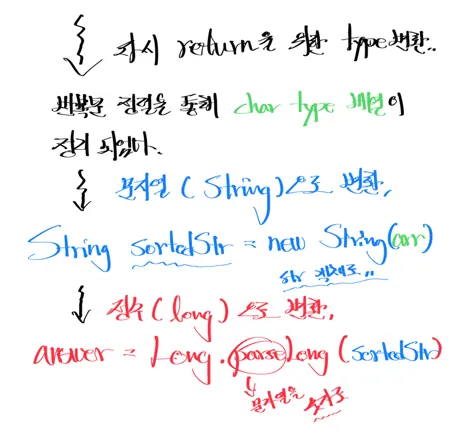 다시 return을 위한 type변환..
반복문 정렬을 통해 char type 배열이
정거 되었다.
문자열 (String)으로 변환,
String sortedStr = new String(arr)
str 객체로..
정수(long)으로 변환,
answer = Long.parseLong (sortedStr)
문자열을 숫자로